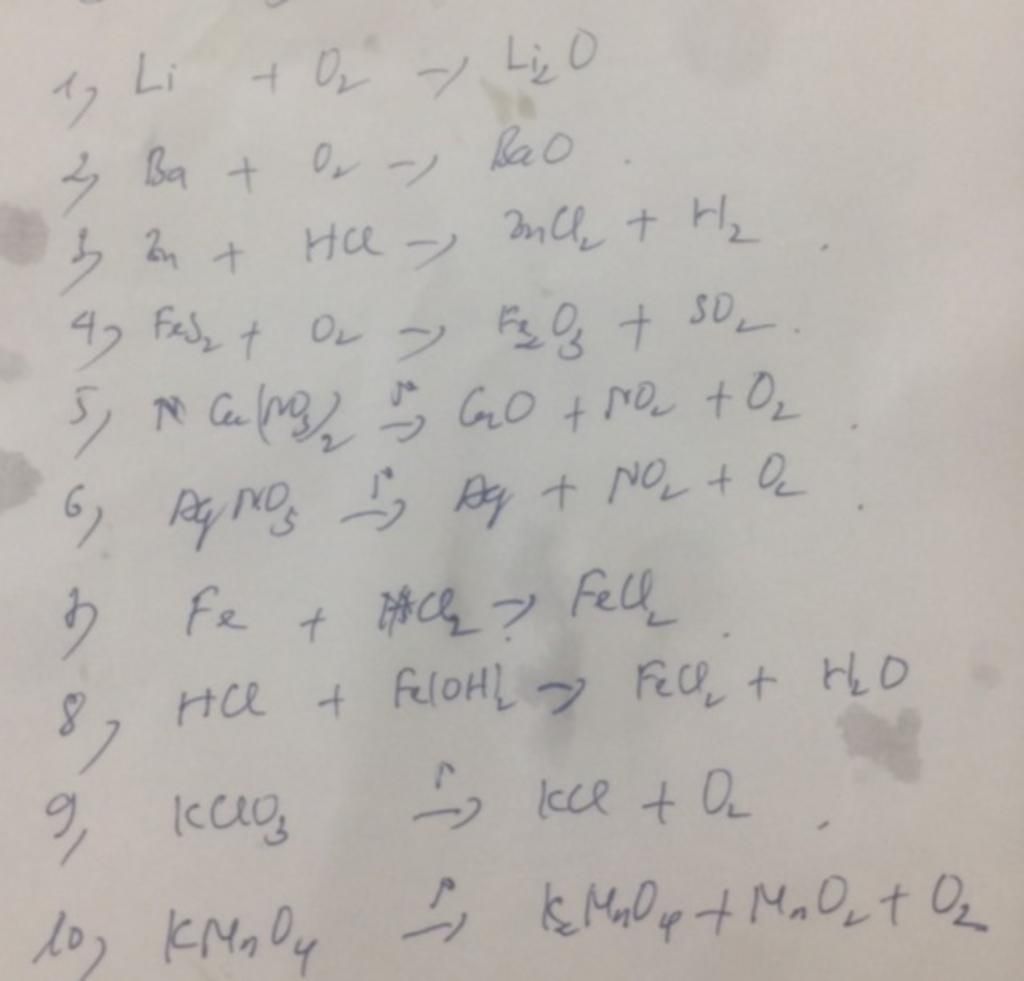 1) Li + O₂ → Li₂O
2) Ba + O₂ → BaO .
3) Zn + HCl → ZnCl₂ + H₂ .
4) FeS₂ + O₂ → Fe₂O₃ + SO₂ .
5) Cu(NO₃)₂ t°→ CuO + NO₂ + O₂ .
6) AgNO₃ t°→ Ag + NO₂ + O₂ .
7) Fe + Cl₂ → FeCl₂ .
8) HCl + Fe(OH)₂ → FeCl₂ + H₂O
9) KClO₃ t°→ KCl + O₂ .
10) KMnO₄ t°→ K₂MnO₄ + MnO₂ + O₂